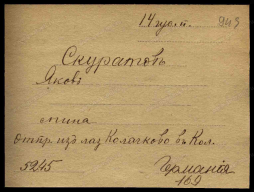 14 гус.п. 949
Скуратовъ
Яковъ
мина
Отпр. изъ лаз Колачково въ Кол.
5245 Германія
169